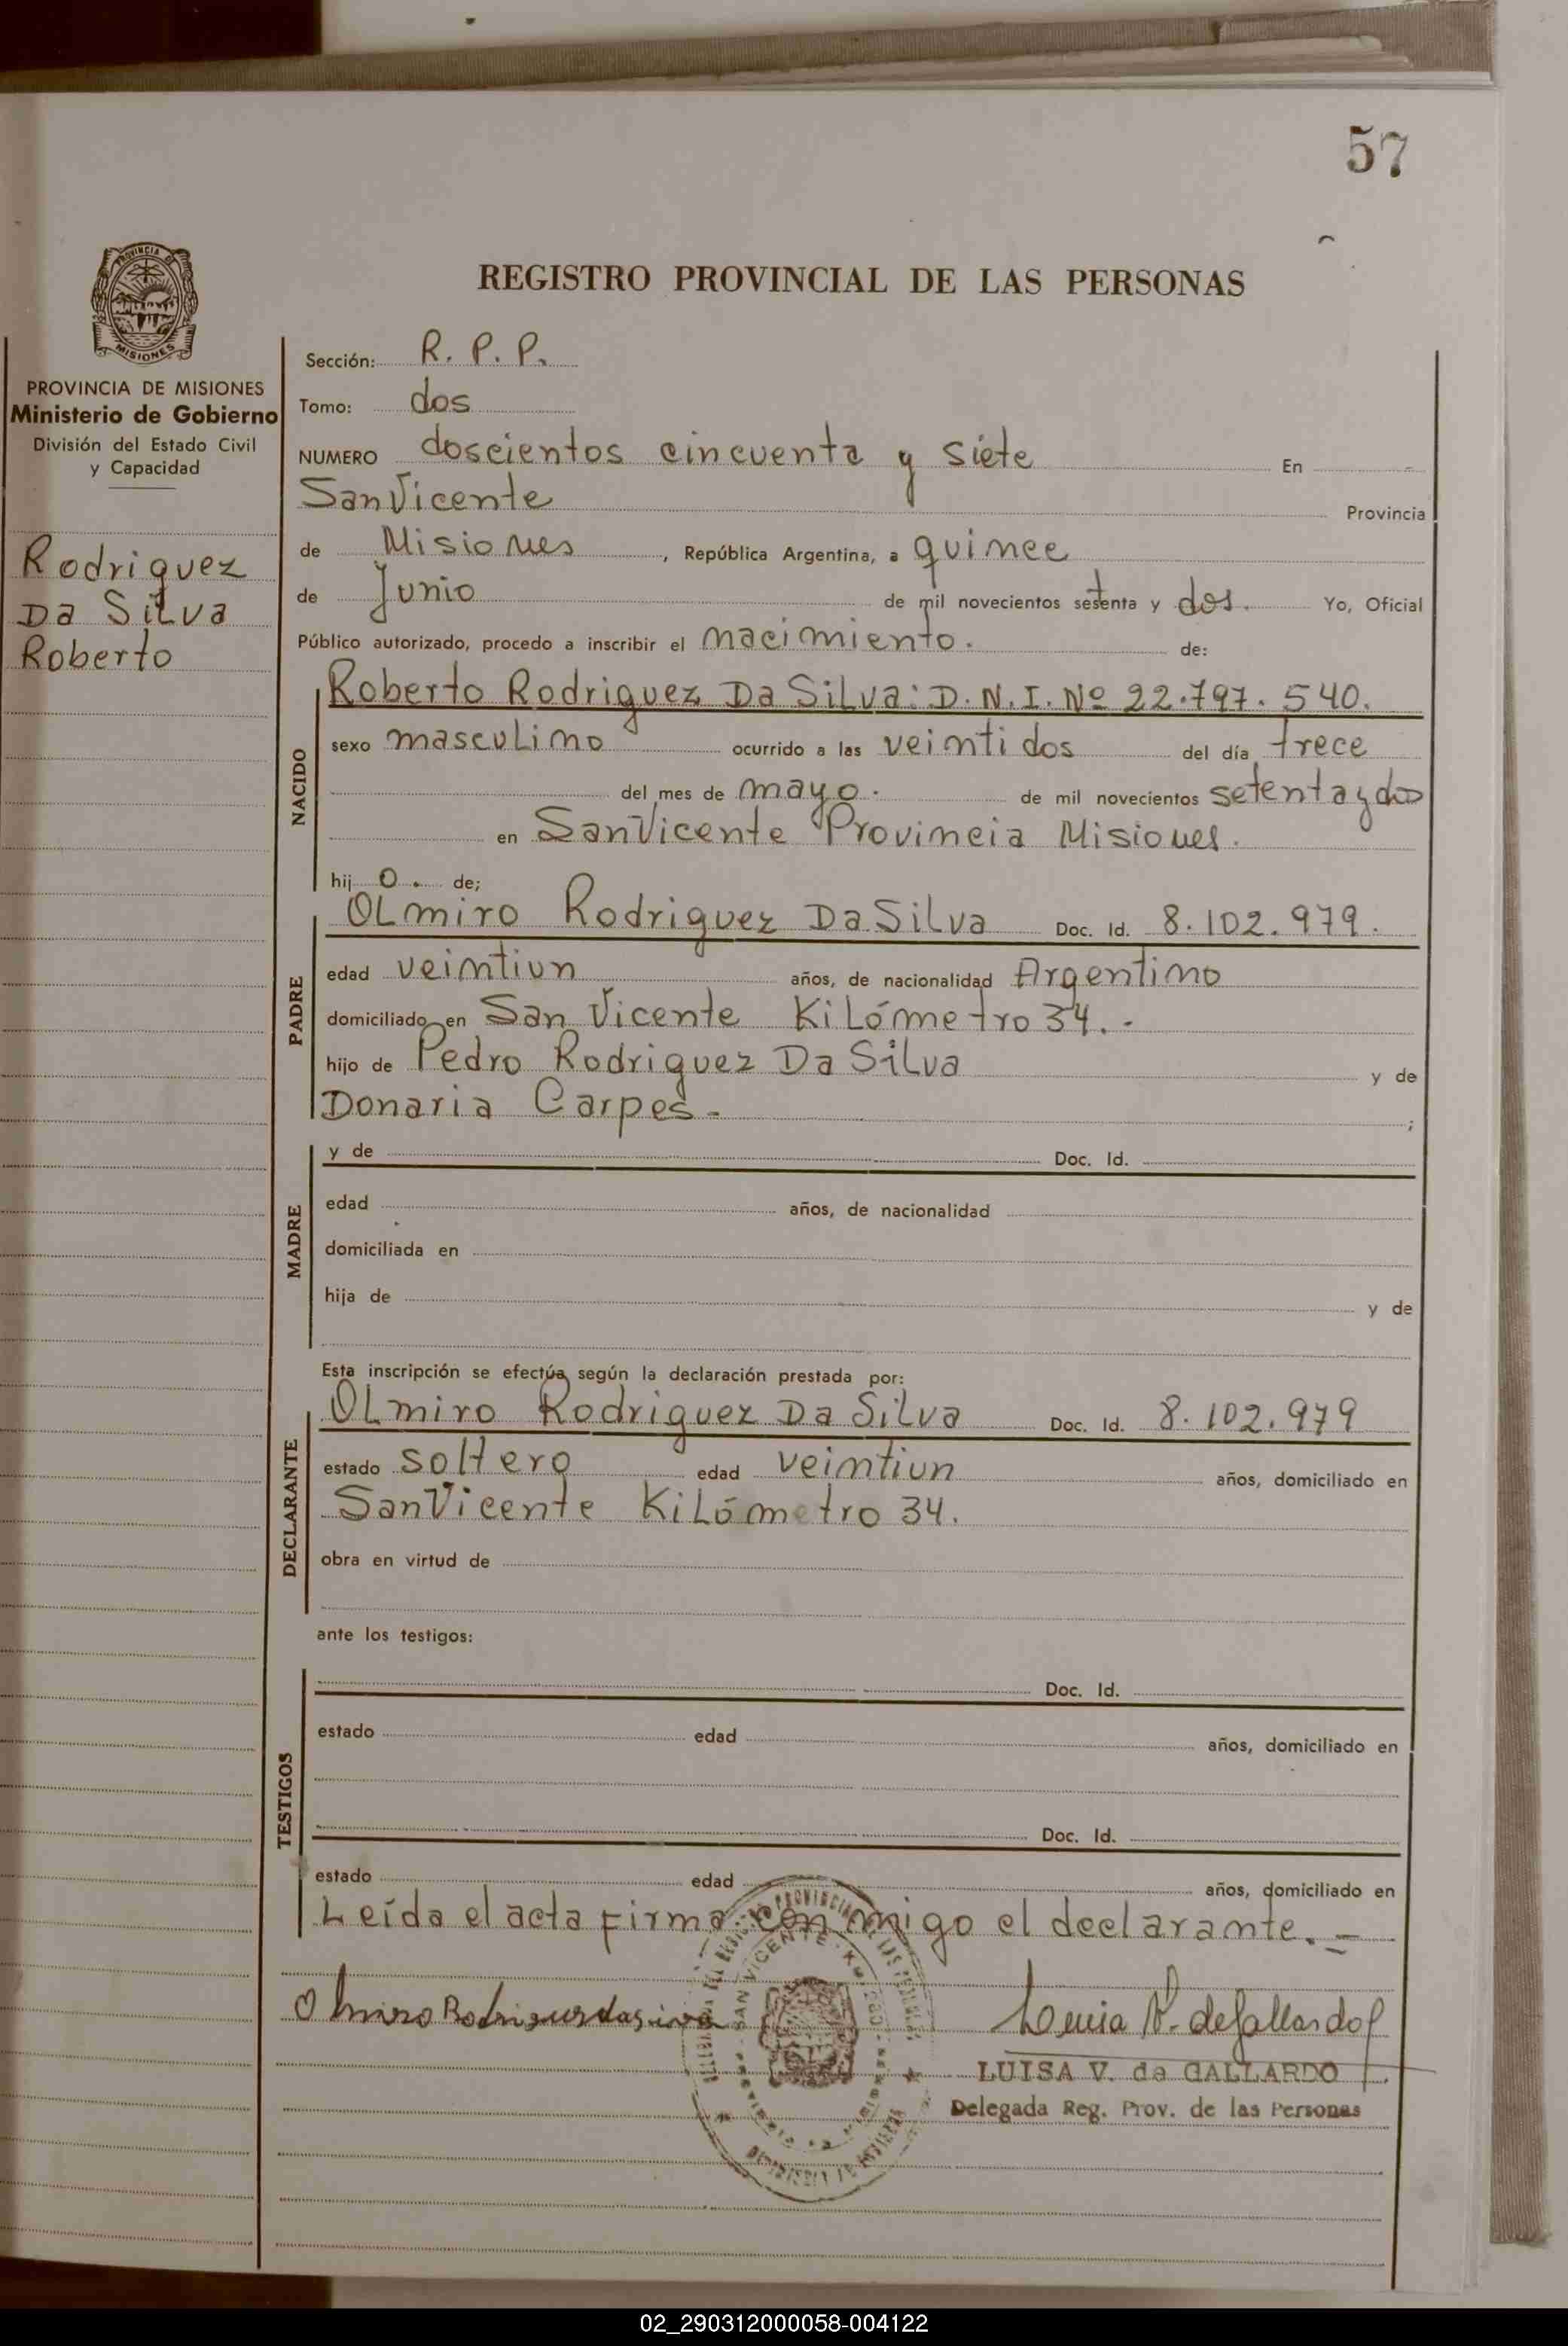 57
REGISTRO PROVINCIAL DE LAS PERSONAS
PROVINCIA DE MISIONES
PROVINCIA DE MISIONES
Ministerio de Gobierno
División del Estado Civil
y Capacidad
Rodriguez
Da Silva
Roberto
Sección: R. P. P.
Tomo: dos
NUMERO doscientos cincuenta y siete En
San Vicente Provincia
de Misiones, República Argentina, a quince
de Junio de mil novecientos setenta y dos. Yo, Oficial
Público autorizado, procedo a inscribir el nacimiento. de:
NACIDO
Roberto Rodriguez Da Silva: D.N.I. Nº 22.797.540.
sexo masculino ocurrido a las veintidos del día trece
del mes de mayo. de mil novecientos setenta y dos
en San Vicente Provincia Misiones.
hij o. de;
PADRE
Olmiro Rodriguez Da Silva Doc. Id. 8.102.979.
edad veintiun años, de nacionalidad Argentino
domiciliado en San Vicente Kilómetro 34.-
hijo de Pedro Rodriguez Da Silva y de
Donaria Carpes- ;
MADRE
y de Doc. Id.
edad años, de nacionalidad
domiciliada en
hija de y de
Esta inscripción se efectúa según la declaración prestada por:
DECLARANTE
Olmiro Rodriguez Da Silva Doc. Id. 8.102.979
estado soltero edad veintiun años, domiciliado en
San Vicente Kilómetro 34.
obra en virtud de
ante los testigos:
TESTIGOS
Doc. Id.
estado edad años, domiciliado en
Doc. Id.
estado edad años, domiciliado en
Leída el acta firma con migo el declarante.-
Luisa V. de Gallardo
LUISA V. de GALLARDO
Delegada Reg. Prov. de las Personas
SAN VICENTE
02_290312000058-004122